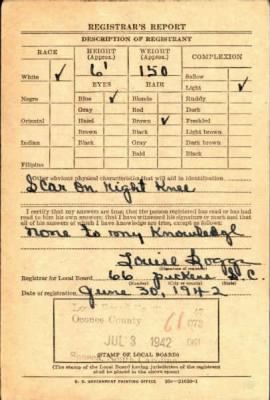 REGISTRAR'S REPORT
DESCRIPTION OF REGISTRANT
RACE HEIGHT (Approx.) WEIGHT (Approx.) COMPLEXION
6' 150 Sallow
White ✓ EYES HAIR Light ✓
Negro Blue ✓ Blonde Ruddy
Gray Red Dark
Oriental Hazel Brown ✓ Freckled
Brown Black Light brown
Indian Black Gray Dark brown
Bald Black
Filipino
Other obvious physical characteristics that will aid in identification
Scar on right Knee
I certify that my answers are true; that the person registered has read or has had
read to him his own answers; that I have witnessed his signature or mark and that
all of his answers of which I have knowledge are true, except as follows:
None to my Knowledge
Louise
(Signature of registrar)
Registrar for Local Board 66 Pickens S.C.
(Number) (City or county) (State)
Date of registration June 30, 1942
Oconee County 61
073
JUL 3 1942 061
(STAMP OF LOCAL BOARD)
(The stamp of the Local Board having jurisdiction of the registrant
shall be placed in the above space)
U. S. GOVERNMENT PRINTING OFFICE 16—21630-1